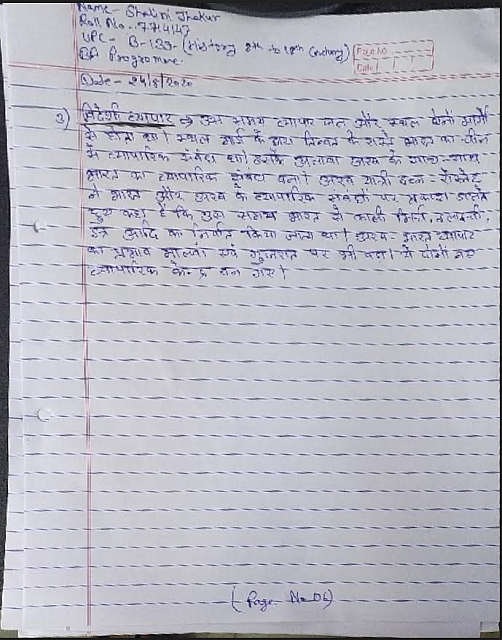 Name- Shalini Thakur
Roll No.- 774147
UPC - B-133- (History 8th to 18th century)
BA Programme.
Page No.
Date
Date- 24/8/2020
3) विदेशी व्यापार → उस समय व्यापार जल और स्थल दोनों मार्गों
से होता था। स्थल मार्ग के द्वारा तिब्बत के रास्ते भारत का चीन
से व्यापारिक संबंध था। इसके अलावा अरब के साथ-साथ
भारत का व्यापारिक संबंध बना। अरब यात्री इब्न-
ने भारत और अरब के व्यापारिक संबंधों पर प्रकाश डालते
हुए कहा है कि इस समय भारत से काली मिर्च,
इत्र आदि का निर्यात किया जाता था। अरब-भारत व्यापार
का प्रभाव मालवा एवं गुजरात पर भी पड़ा। ये दोनों नए
व्यापारिक केन्द्र बन गए।
(Page No 06)